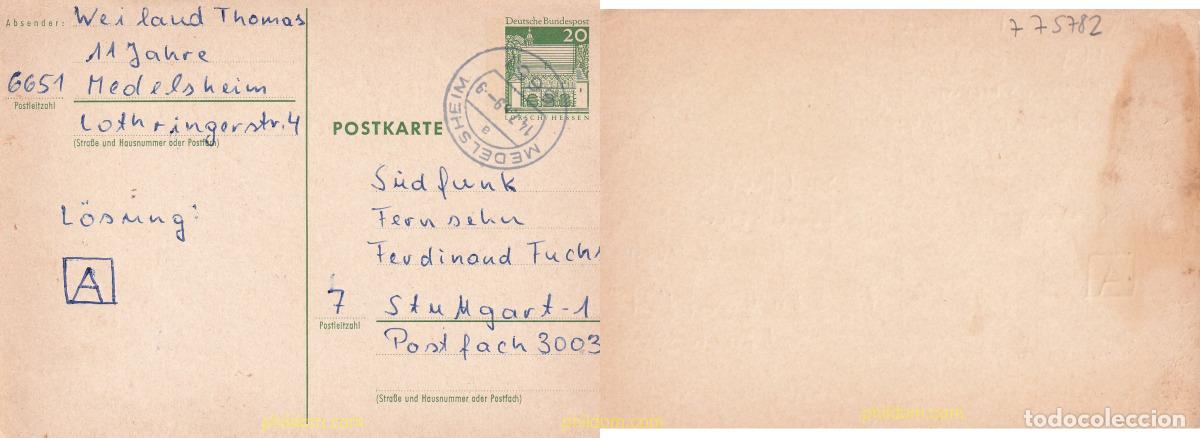 Absender: Weiland Thomas
11 Jahre
6651 Medelsheim
Postleitzahl
Lothringerstr. 4
(Straße und Hausnummer oder Postfach)
Lösung:
A
Deutsche Bundespost
20
LORSCH/HESSEN
MEDELSHEIM
a
POSTKARTE
Südfunk
Fernsehn
Ferdinand Fuchs
7 Stuttgart-1
Postleitzahl
Postfach 3003
(Straße und Hausnummer oder Postfach)
phildom.com
phildom.com
775782
phildom.com
todocoleccion